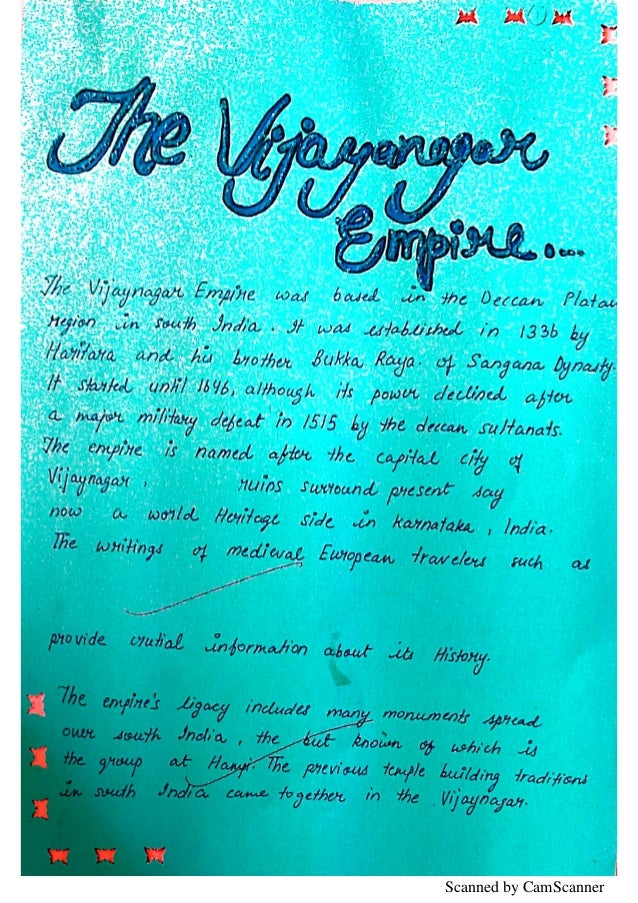 The Vijayanagar
Empire....
The Vijaynagar Empire was based in the Deccan Platau
region in south India. It was established in 1336 by
Haritara and his brother Bukka Raya. of Sangana Dynasty.
It started until 1646, although its power declined after
a major military defeat in 1515 by the deccan sultanats.
The empire is named after the capital city of
Vijaynagar, ruins surround present say
now a world Heritage side in Karnataka, India.
The writings of medieval European travelers such as
provide crutial information about its History.
The empire's ligacy includes many monuments spread
over south India, the but known of which is
the group at Hampi. The previous temple building traditions
in south India came together in the Vijaynagar.
Scanned by CamScanner